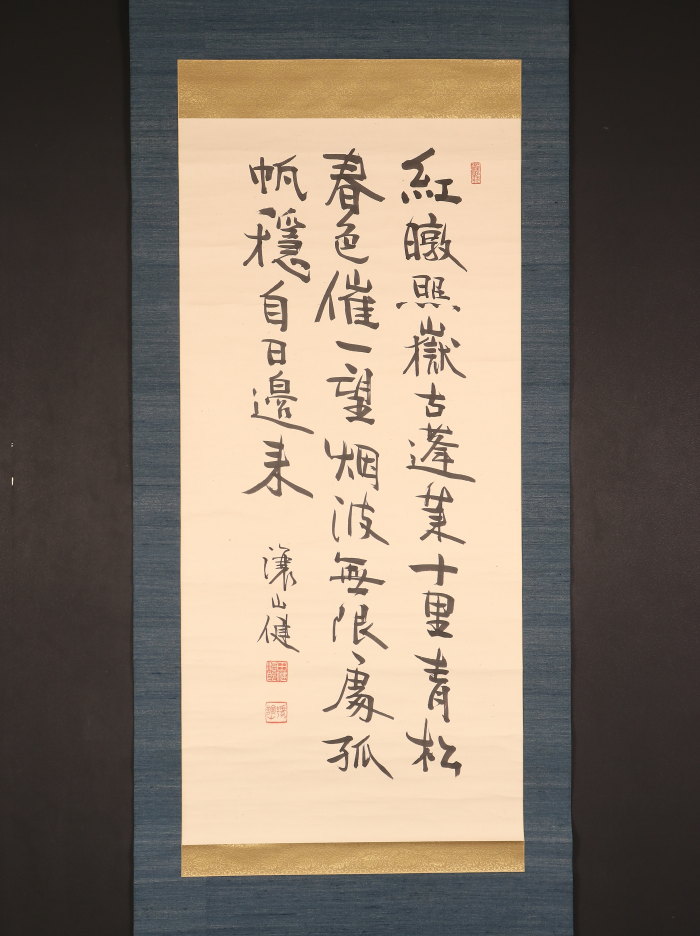 紅暾照嶽古蓬萊十里青松
春色催一望烟波無限處孤
帆穩自日邊来
山健